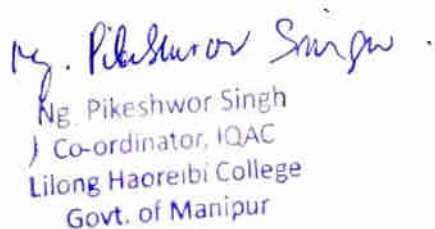 Ng. Pikeshwor Singh.
Ng. Pikeshwor Singh
) Co-ordinator, IQAC
Lilong Haoreibi College
Govt. of Manipur